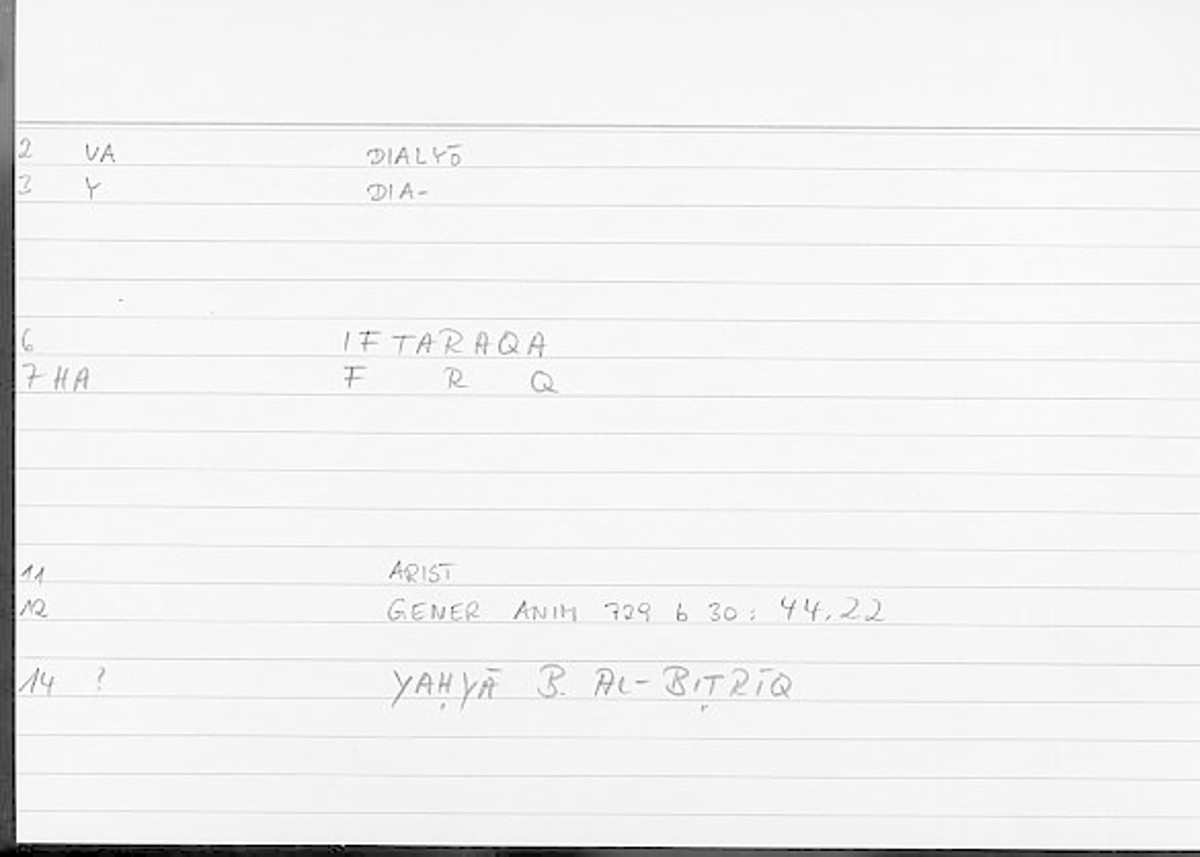 2 VA DIALYŌ
3 Y DIA-
6 IFTARAQA
7 HA F R Q
11 ARIST
12 GENER ANIM 729 b 30 : 44,22
14 ? YAḤYĀ B. AL-BIṬRĪQ